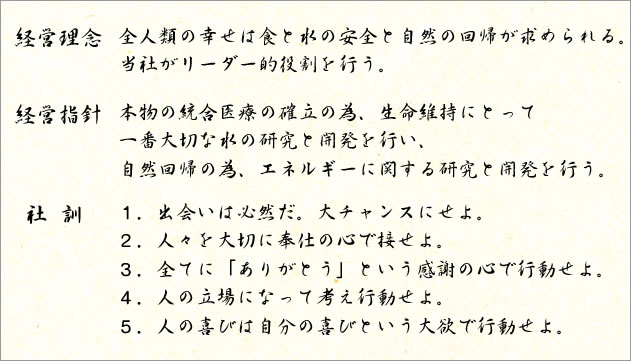 経営理念 全人類の幸せは食と水の安全と自然の回帰が求められる。
当社がリーダー的役割を行う。
経営指針 本物の統合医療の確立の為、生命維持にとって
一番大切な水の研究と開発を行い、
自然回帰の為、エネルギーに関する研究と開発を行う。
社訓 1．出会いは必然だ。大チャンスにせよ。
2．人々を大切に奉仕の心で接せよ。
3．全てに「ありがとう」という感謝の心で行動せよ。
4．人の立場になって考え行動せよ。
5．人の喜びは自分の喜びという大欲で行動せよ。